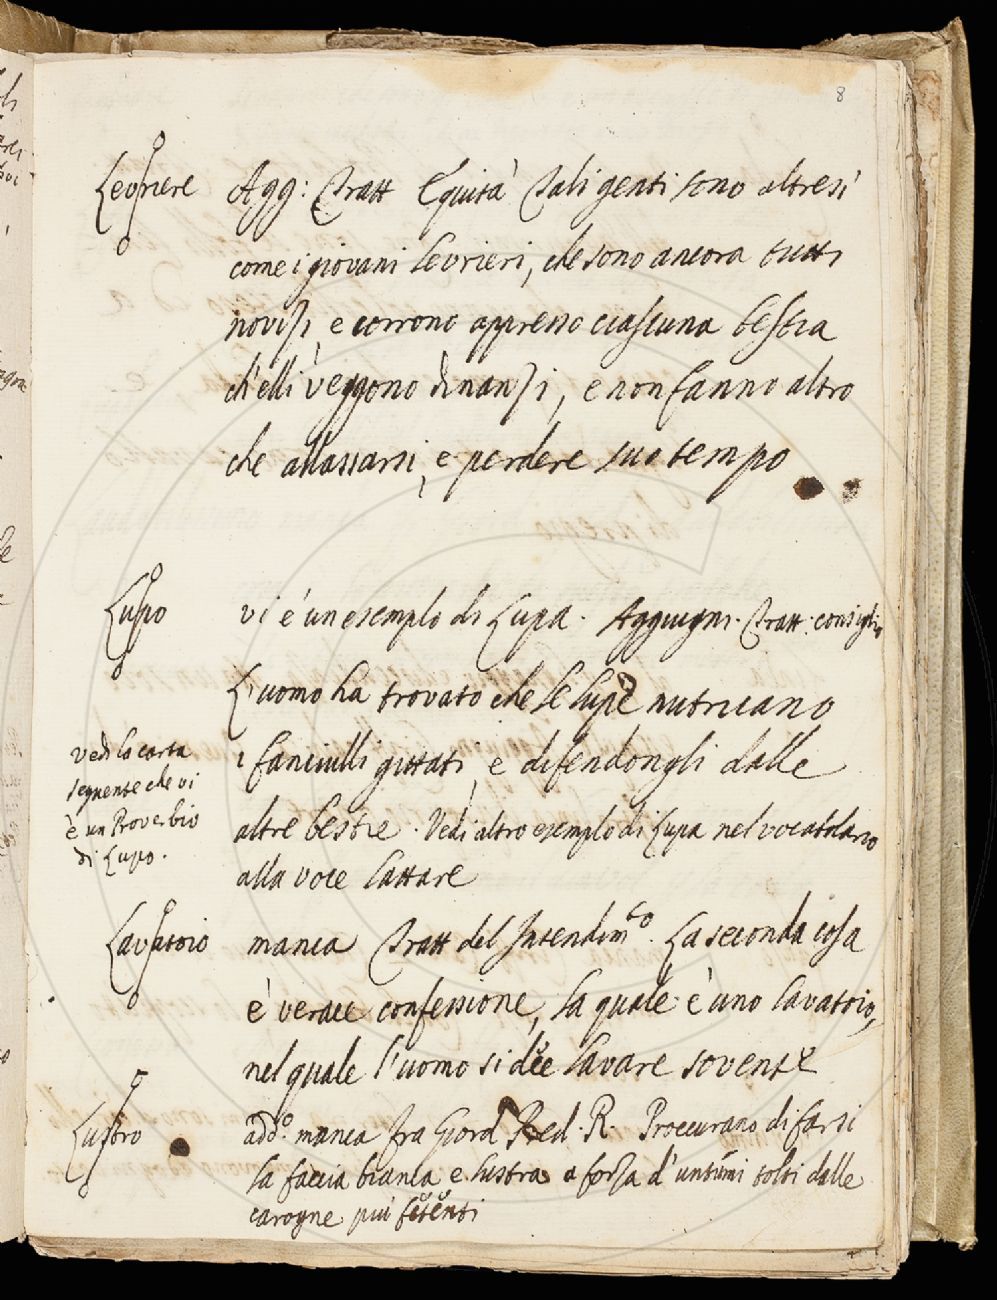 8
Levriere Agg: Tratt Equità Tali genti sono altresì
come i giovani levrieri, che sono ancora tutti
novizi, e corrono appresso ciascuna bestia
ch'elli veggono dinanzi, e non fanno altro
che allassarsi, e perdere suo tempo
Lupo vi è un esemplo di Lupa. Aggiugni. Tratt. consiglio
L'uomo ha trovato che le lupe nutricano
i fanciulli gittati, e difendongli dalle
altre bestie. Vedi altro esemplo di Lupa nel vocabolario
alla voce lattare
Vedi la carta
seguente che vi
è un Proverbio
di Lupo.
Lavatoio manca Tratt del Intendim.to La seconda cosa
è verace confessione, la quale è uno lavatoio,
nel quale l'uomo si dee lavare sovente
Lustro add.o manca fra Giord Pred. R. Proccurano di farsi
la faccia bianca e lustra a forza d'untumi tolti dalle
carogne più fetenti